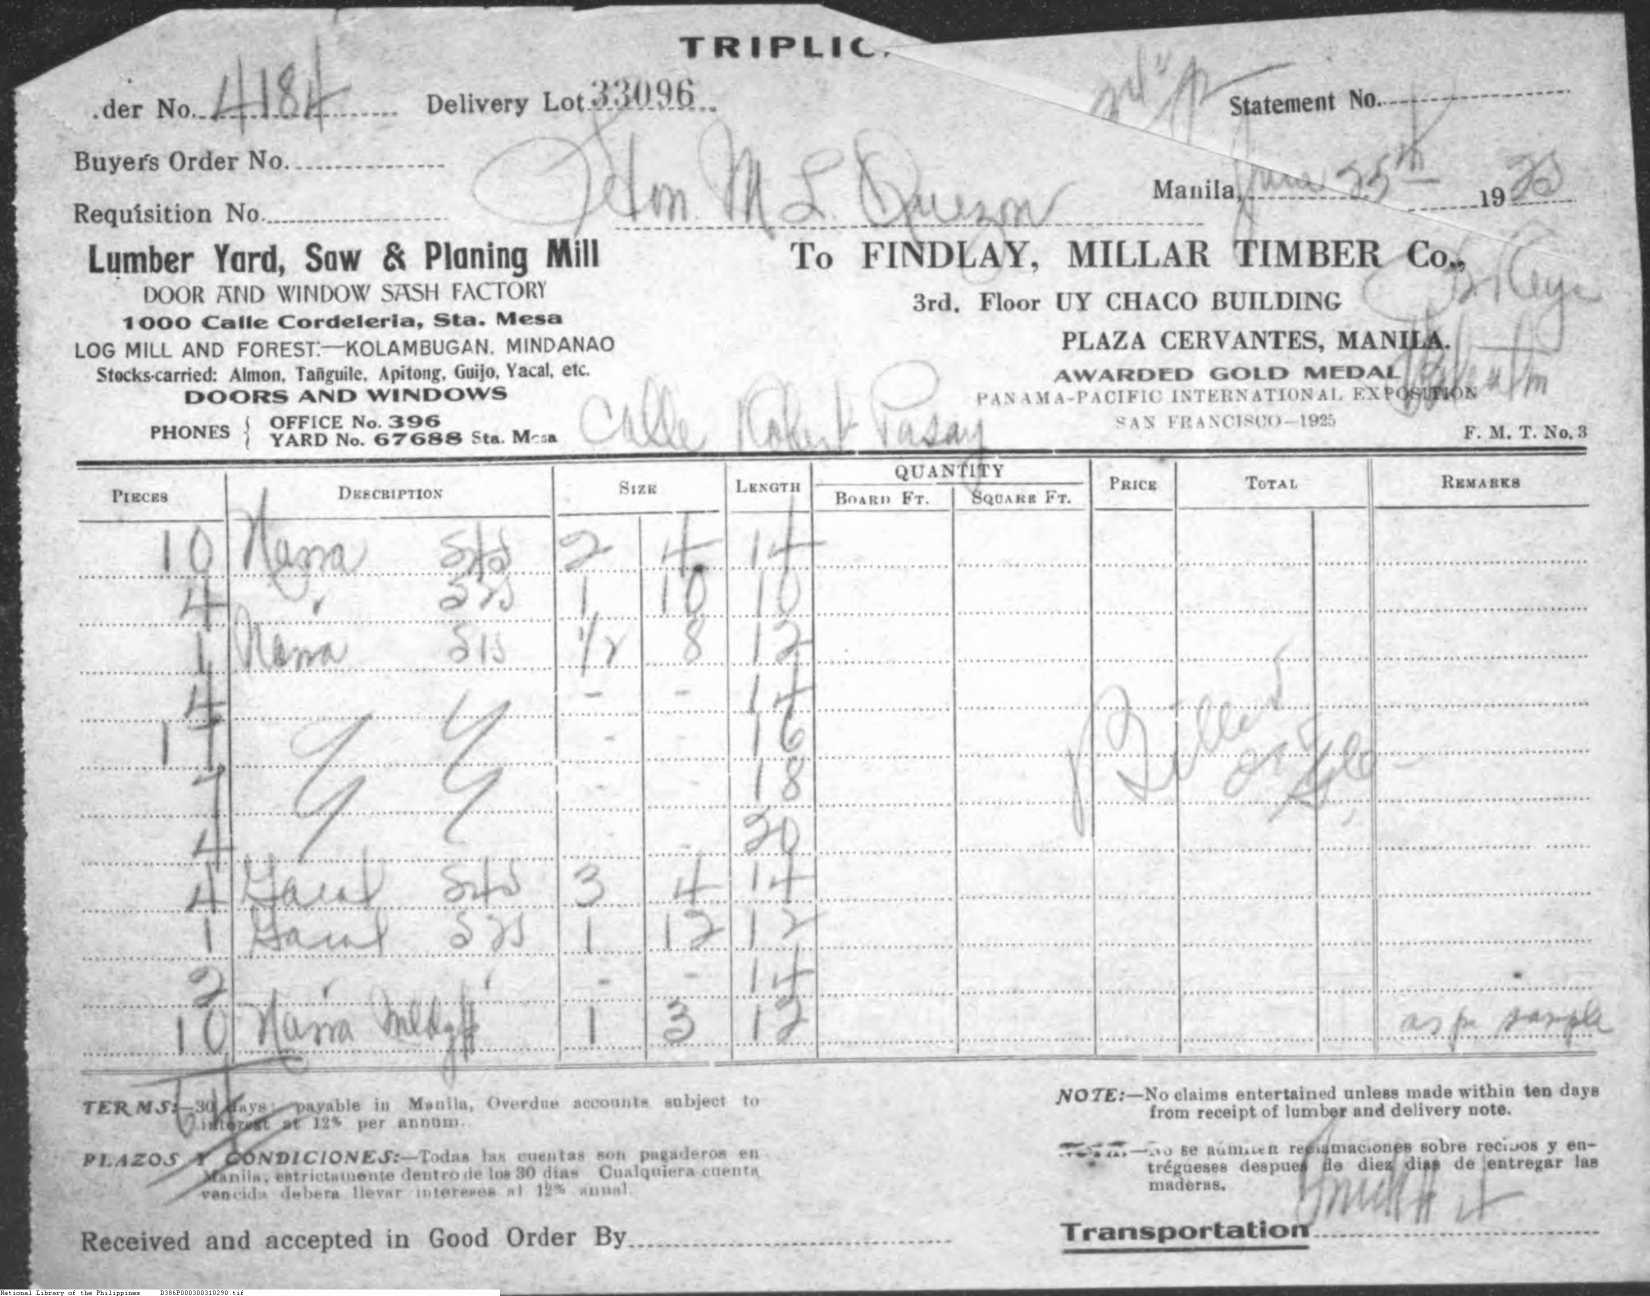 TRIPLIC.
.der No. 4184 Delivery Lot 33096 Statement No.
Buyer's Order No.
Hon. M L Quezon
Manila, June 25th 1925
Requisition No.
Lumber Yard, Saw & Planing Mill
DOOR AND WINDOW SASH FACTORY
1000 Calle Cordeleria, Sta. Mesa
LOG MILL AND FOREST:—KOLAMBUGAN. MINDANAO
Stocks-carried: Almon, Tañguile, Apitong, Guijo, Yacal, etc.
DOORS AND WINDOWS
PHONES { OFFICE No. 396
YARD No. 67688 Sta. Mesa
To FINDLAY, MILLAR TIMBER Co.,
3rd. Floor UY CHACO BUILDING
PLAZA CERVANTES, MANILA.
AWARDED GOLD MEDAL
PANAMA-PACIFIC INTERNATIONAL EXPOSITION
SAN FRANCISCO—1925
F. M. T. No. 3
Calle Robert Pasay
PIECES DESCRIPTION SIZE LENGTH QUANTITY PRICE TOTAL REMARKS
BOARD FT. SQUARE FT.
10 Narra S4S 2 4 14
4 " S2S 1 10 10
1 Narra S1S 1/2 8 12
4 - - 14
17 - - 16
7 - - 18
4 - 20
4 Yacal S4S 3 4 14
1 Yacal S2S 1 12 12
2 ' ' - - 14
10 Narra Mldg 1 3 12 as per sample
Billed
64
TERMS:—30 days payable in Manila, Overdue accounts subject to
interest at 12% per annum.
PLAZOS Y CONDICIONES:—Todas las cuentas son pagaderos en
Manila, estrictamente dentro de los 30 dias Cualquiera cuenta
vencida debera llevar intereses al 12% anual.
NOTE:—No claims entertained unless made within ten days
from receipt of lumber and delivery note.
—No se admiten reclamaciones sobre recibos y en-
trégueses despues de diez dias de entregar las
maderas.
Received and accepted in Good Order By
Transportation
National Library of the Philippines D386P000300310290.tif